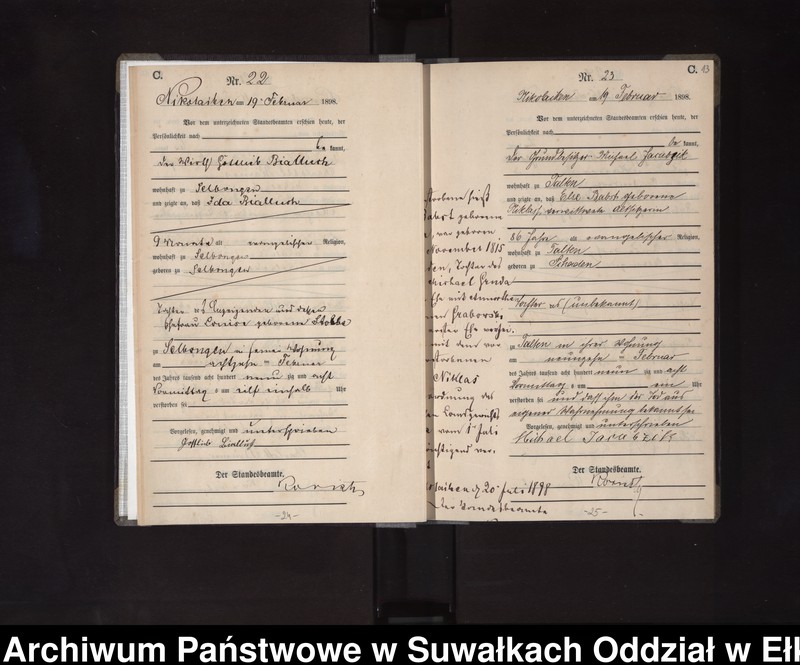 C.
Nr. 22
Nikolaiken am 19. Februar 1898.
Vor dem unterzeichneten Standesbeamten erschien heute, der
Persönlichkeit nach
be kannt,
der Wirth Gottlieb Bialluch
wohnhaft zu Selbongen
und zeigte an, daß Ida Bialluch
9 Monate alt evangelischer Religion,
wohnhaft zu Selbongen
geboren zu Selbongen
Tochter des Anzeigenden und dessen
Ehefrau Louise geborene
zu Selbongen in seiner Wohnung
am achtzehn ten Februar
des Jahres tausend acht hundert neun zig und acht
Vormittag s um elf einhalb Uhr
verstorben sei
Vorgelesen, genehmigt und unterschrieben
Gottlieb Bialluch
Der Standesbeamte.
-24-
C. 13
Nr. 23
Nikolaiken am 19 Februar 1898.
Vor dem unterzeichneten Standesbeamten erschien heute, der
Persönlichkeit nach
be kannt,
der Grundbesitzer Michael Jarubzik
wohnhaft zu Talten
und zeigte an, daß geborene
Niklas, verwittwete
86 Jahr alt evangelischer Religion,
wohnhaft zu Talten
geboren zu Schaden
Tochter des (unbekannt)
zu Talten in ihrer Wohnung
am neunzehn ten Februar
des Jahres tausend acht hundert neun zig und acht
Vormittag s um ein Uhr
verstorben sei und daß ihm der Tod aus
eigener Wahrnehmung bekannt sei
Vorgelesen, genehmigt und unterschrieben
Michael Jarubzik
Der Standesbeamte.
-25-
storbene hieß
geborene
war geboren
November 1815
den, Tochter des
Michael
Ehe mit
erster Ehe
mit dem
storbenen
Niklas
ordnung des
vom 1. Juli
laiken d 20 Juli 1898
Der Standesbeamte
Archiwum Państwowe w Suwałkach Oddział w Ełk